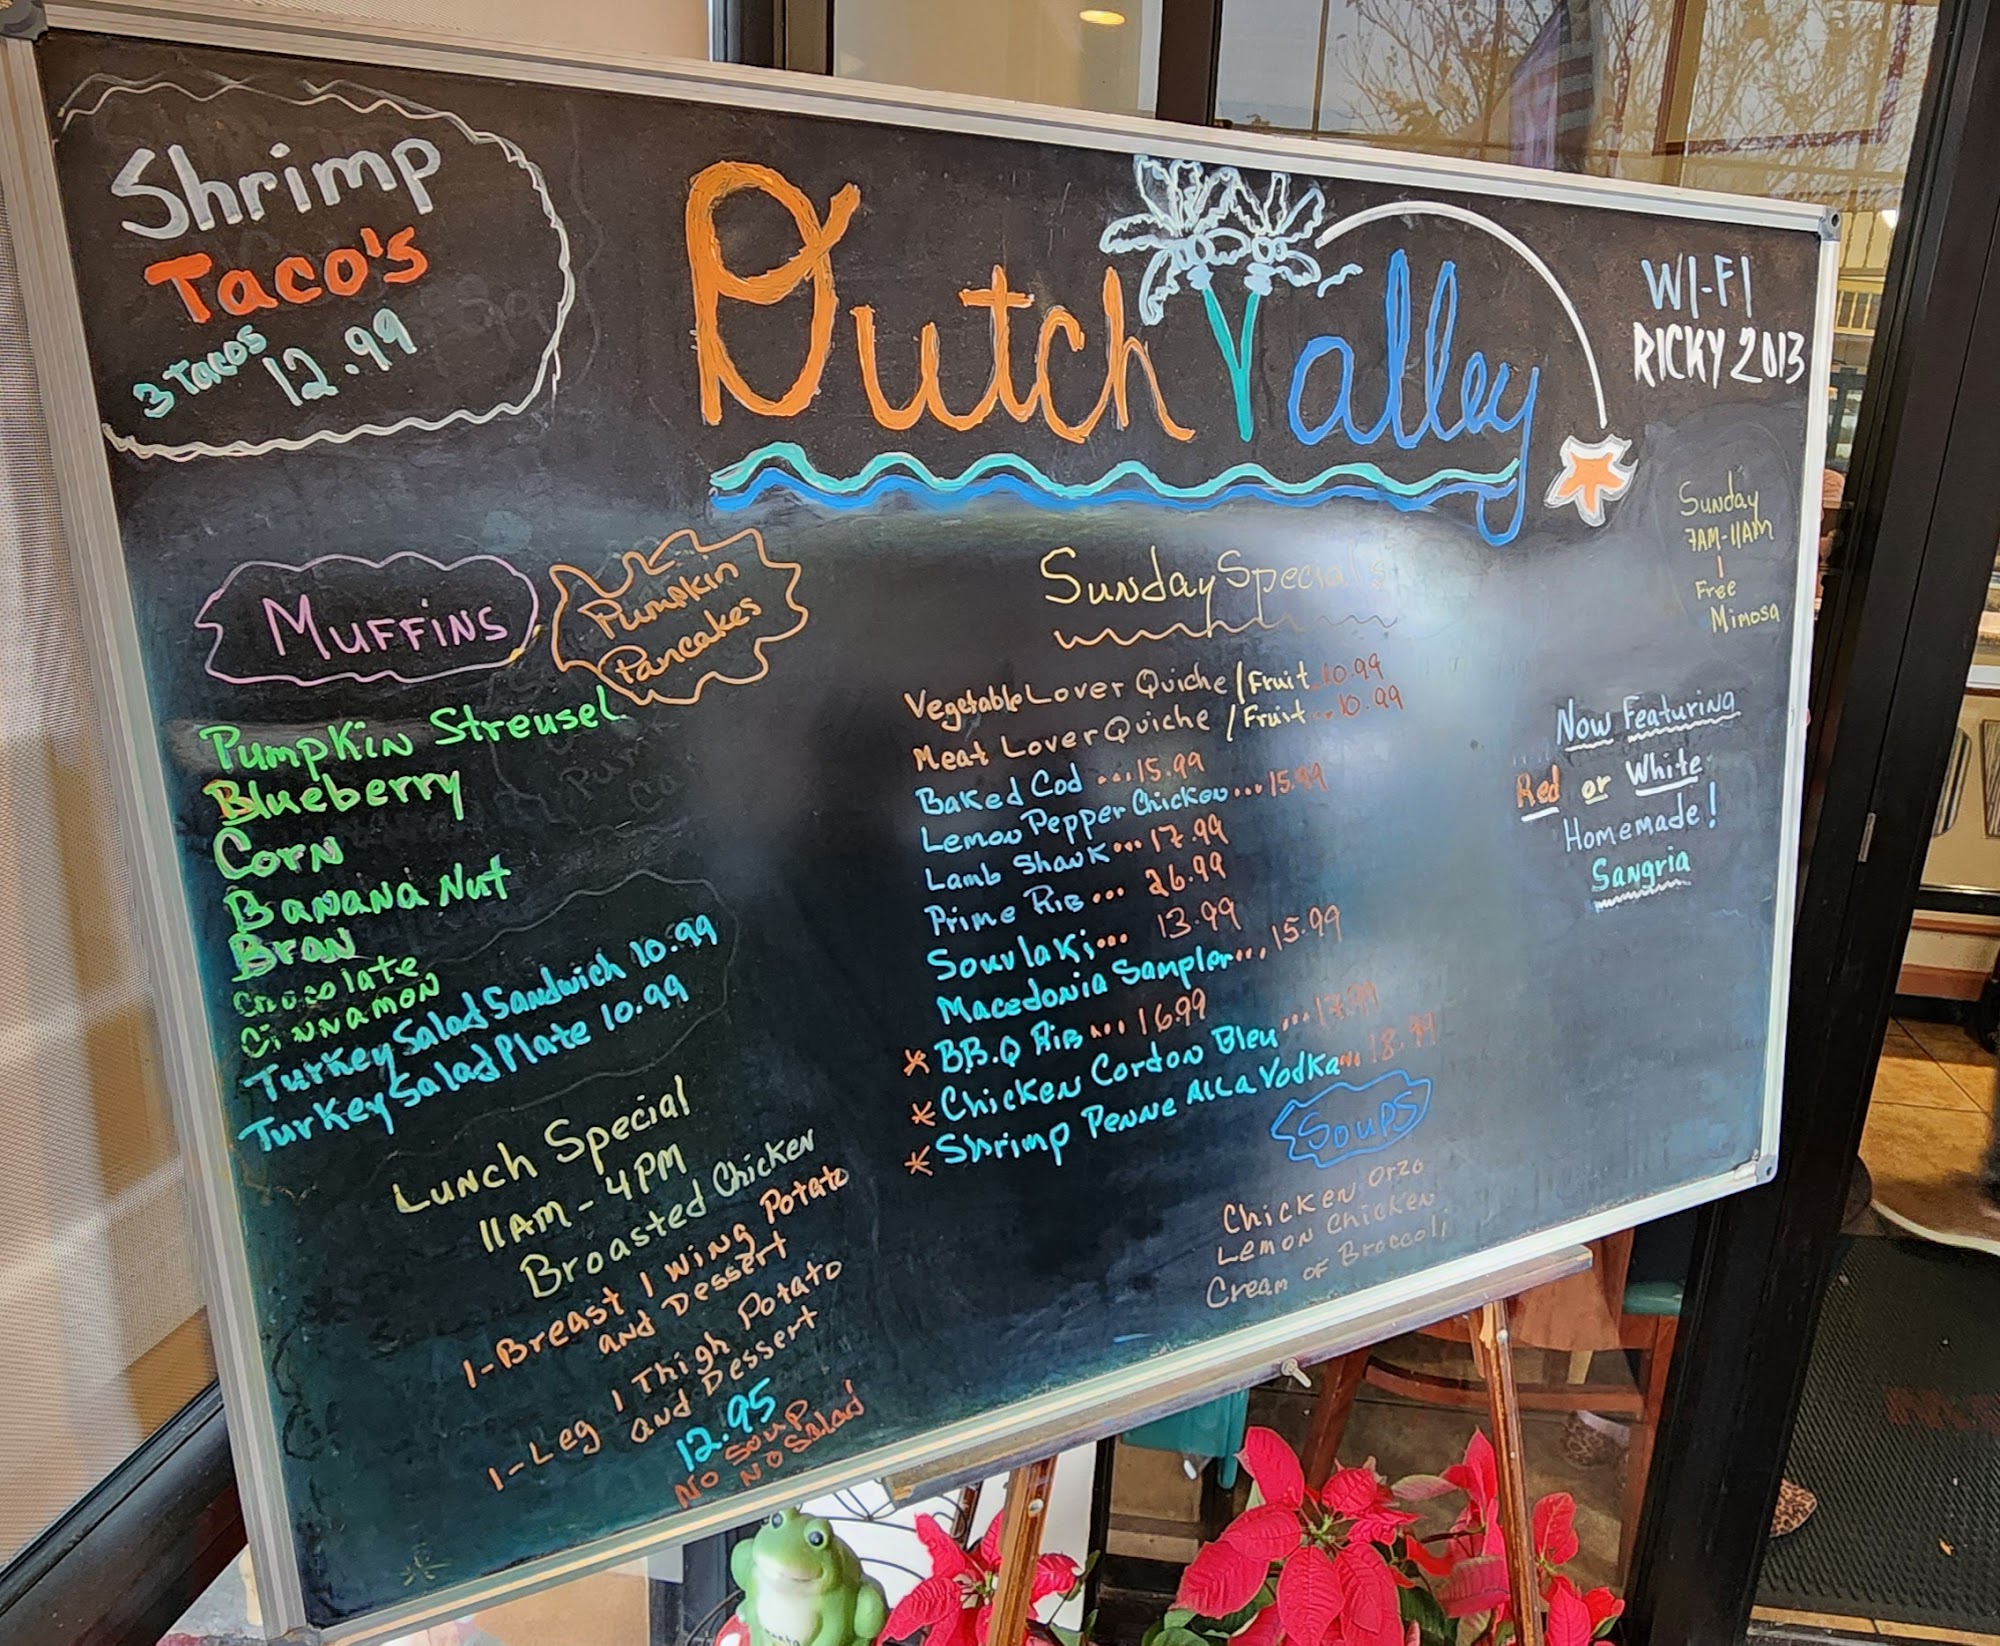 Shrimp
Taco's
3 Tacos 12.99
Dutch Valley
WI-FI
RICKY2013
Sunday
7AM-11AM
Free
Mimosa
Muffins
Pumpkin
Pancakes
Pumpkin Streusel
Blueberry
Corn
Banana Nut
Bran
Chocolate
Cinnamon
Turkey Salad Sandwich 10.99
Turkey Salad Plate 10.99
Lunch Special
11AM-4PM
Broasted Chicken
1-Breast 1 Wing Potato
and Dessert
1-Leg 1 Thigh Potato
and Dessert
12.95
No Soup
No Salad
Sunday Specials
Vegetable Lover Quiche/Fruit...10.99
Meat Lover Quiche/Fruit...10.99
Baked Cod...15.99
Lemon Pepper Chicken...15.99
Lamb Shank...17.99
Prime Rib... 26.99
Souvlaki... 13.99
Macedonia Sampler...15.99
* B.B.Q Rib...16.99
* Chicken Cordon Bleu...17.99
* Shrimp Penne Alla Vodka...18.99
Soups
Chicken Orzo
Lemon Chicken
Cream of Broccoli
Now Featuring
Red or White
Homemade!
Sangria